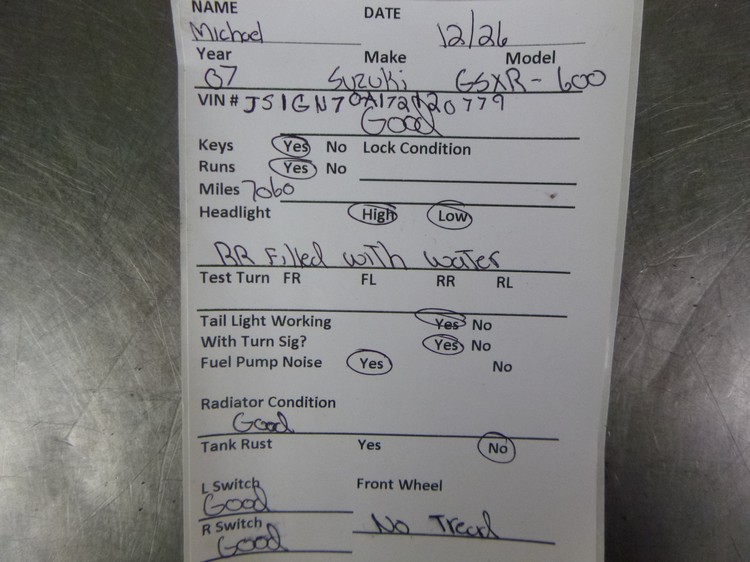 NAME DATE
Michael 12/26
Year Make Model
07 Suzuki GSXR-600
VIN # JS1GN70A172120779
Good
Keys Yes No Lock Condition
Runs Yes No
Miles 7060
Headlight High Low
RR Filled with water
Test Turn FR FL RR RL
Tail Light Working Yes No
With Turn Sig? Yes No
Fuel Pump Noise Yes No
Radiator Condition
Good
Tank Rust Yes No
L Switch Front Wheel
Good
R Switch No Tread
Good